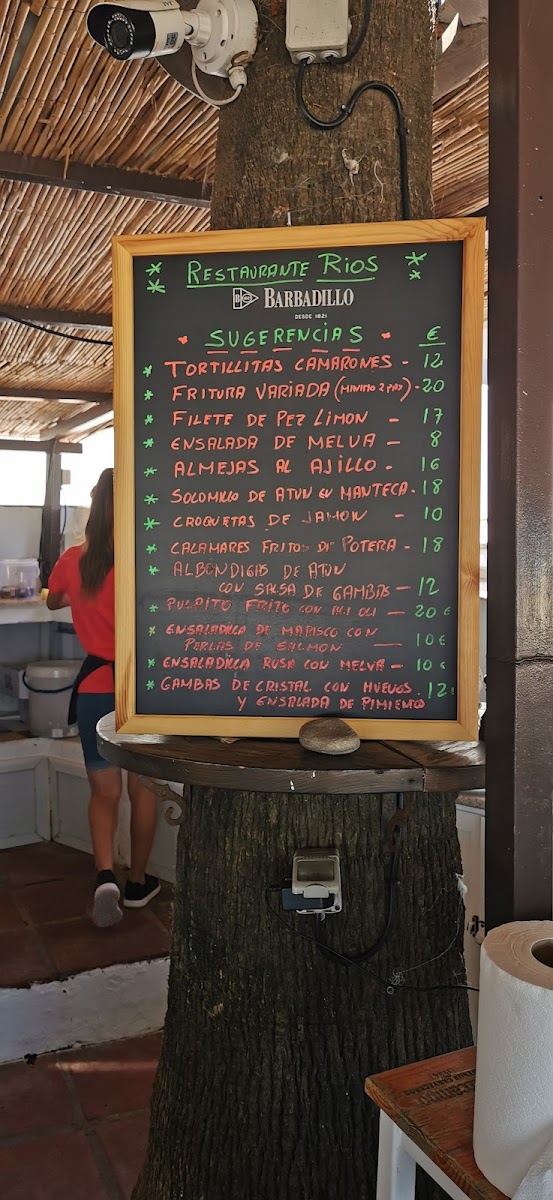 RESTAURANTE RIOS
BARBADILLO
DESDE 1821
SUGERENCIAS €
TORTILLITAS CAMARONES - 12
FRITURA VARIADA (MINIMO 2 PAX) - 20
FILETE DE PEZ LIMON - 17
ENSALADA DE MELVA - 8
ALMEJAS AL AJILLO - 16
SOLOMILLO DE ATUN EN MANTECA - 18
CROQUETAS DE JAMON - 10
CALAMARES FRITOS DE POTERA - 18
ALBONDIGAS DE ATUN
CON SALSA DE GAMBAS - 12
PULPITO FRITO CON ALI OLI - 20 €
ENSALADILLA DE MARISCO CON
PERLAS DE SALMON - 10 €
ENSALADILLA RUSA CON MELVA - 10 €
GAMBAS DE CRISTAL CON HUEVOS . 12
Y ENSALADA DE PIMIENTO